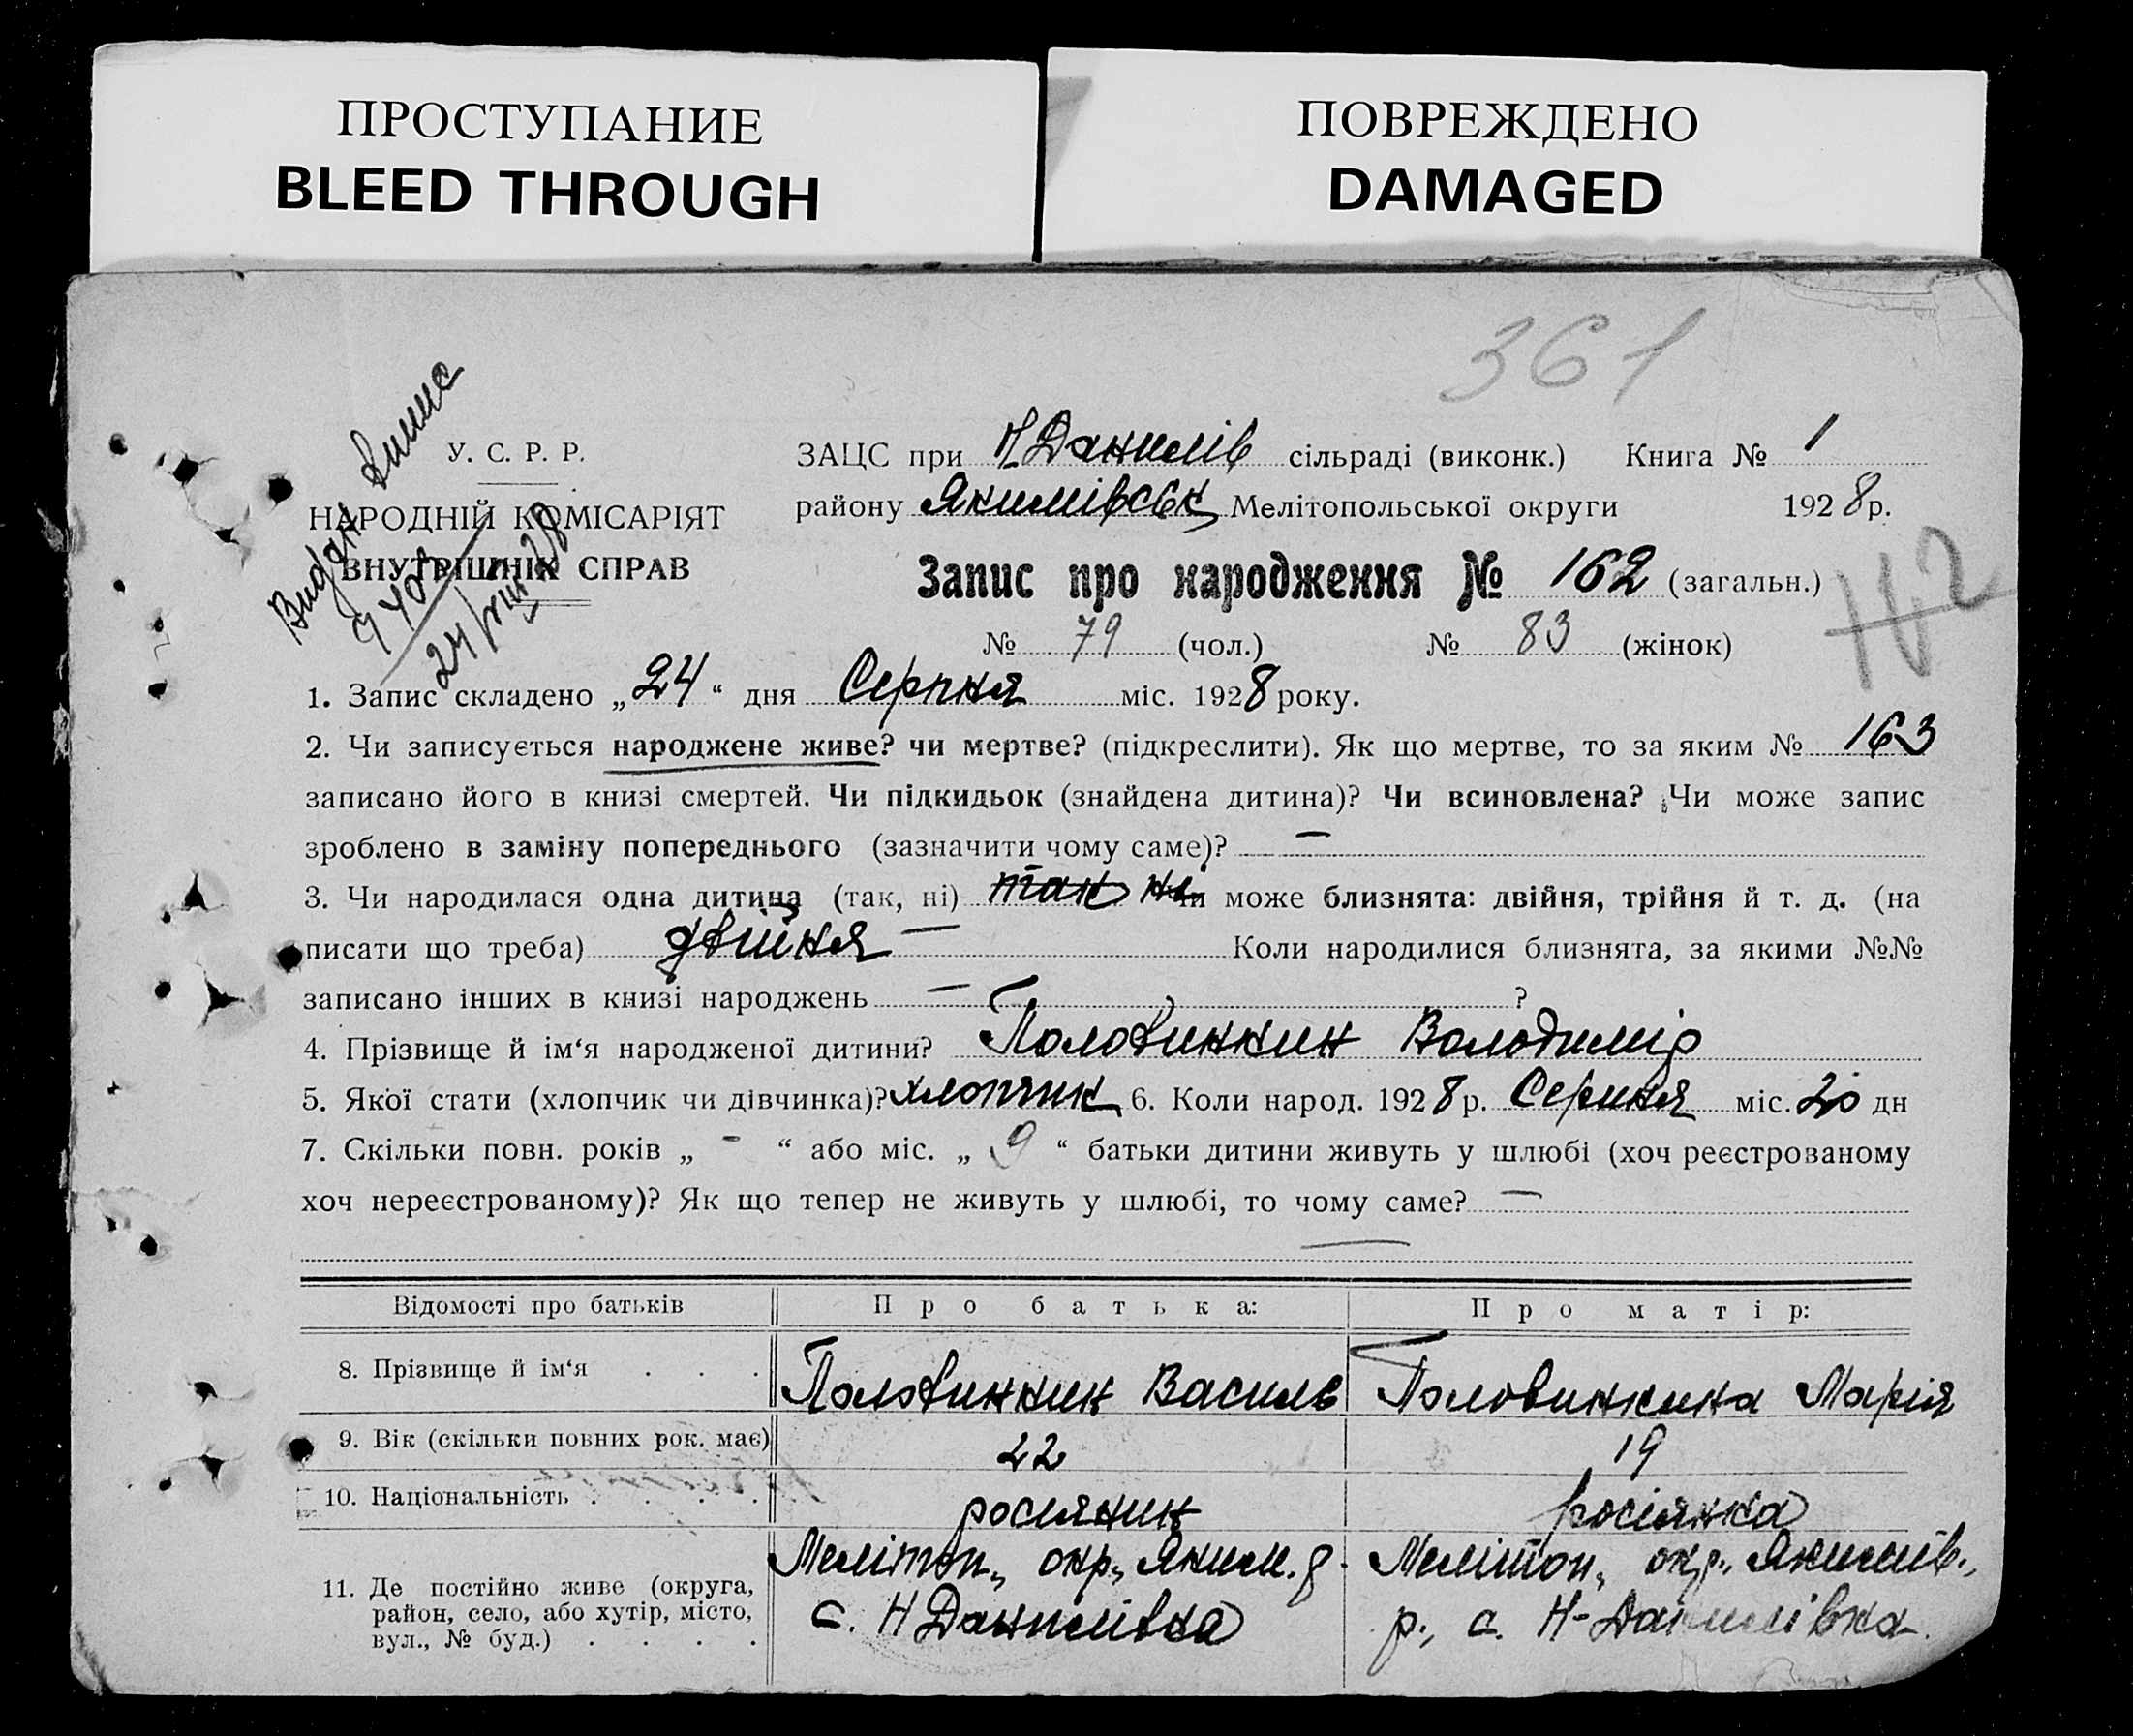 ПРОСТУПАНИЕ
BLEED THROUGH
ПОВРЕЖДЕНО
DAMAGED
361
Видан випис
24/VIII 28
У. С. Р. Р.
НАРОДНІЙ КОМІСАРІЯТ
ВНУТРІШНІХ СПРАВ
ЗАЦС при Н Данилів сільраді (виконк.) Книга № 1
району Якимівськ Мелітопольської округи 1928 р.
Запис про народження № 162 (загальн.)
162
№ 79 (чол.) № 83 (жінок)
1. Запис складено „24“ дня Серпня міс. 1928 року.
2. Чи записується народжене живе? чи мертве? (підкреслити). Як що мертве, то за яким № 163
записано його в книзі смертей. Чи підкидьок (знайдена дитина)? Чи всиновлена? Чи може запис
зроблено в заміну попереднього (зазначити чому саме)? —
3. Чи народилася одна дитина (так, ні) так ні Чи може близнята: двійня, трійня й т. д. (на
писати що треба) двійня — Коли народилися близнята, за якими №№
записано інших в книзі народжень — ?
4. Прізвище й ім‘я народженої дитини? Половинкин Володимір
5. Якої стати (хлопчик чи дівчинка)? хлопчик 6. Коли народ. 1928 р. Серпня міс. 20 дн
7. Скільки повн. років „ - “ або міс. „ 9 “ батьки дитини живуть у шлюбі (хоч реєстрованому
хоч нереєстрованому)? Як що тепер не живуть у шлюбі, то чому саме? —
Відомості про батьків Про батька: Про матір:
8. Прізвище й ім‘я . . . Половинкин Василь Половинкина Марія
9. Вік (скільки повних рок. має) 22 19
10. Національність . . . . росиянин росіянка
11. Де постійно живе (округа, район, село, або хутір, місто, вул., № буд.) . . . .
Мелітоп., окр., Яким. р.
с. Н Данилівка
Мелітоп., окр., Якимів.,
р., с. Н-Данилівка